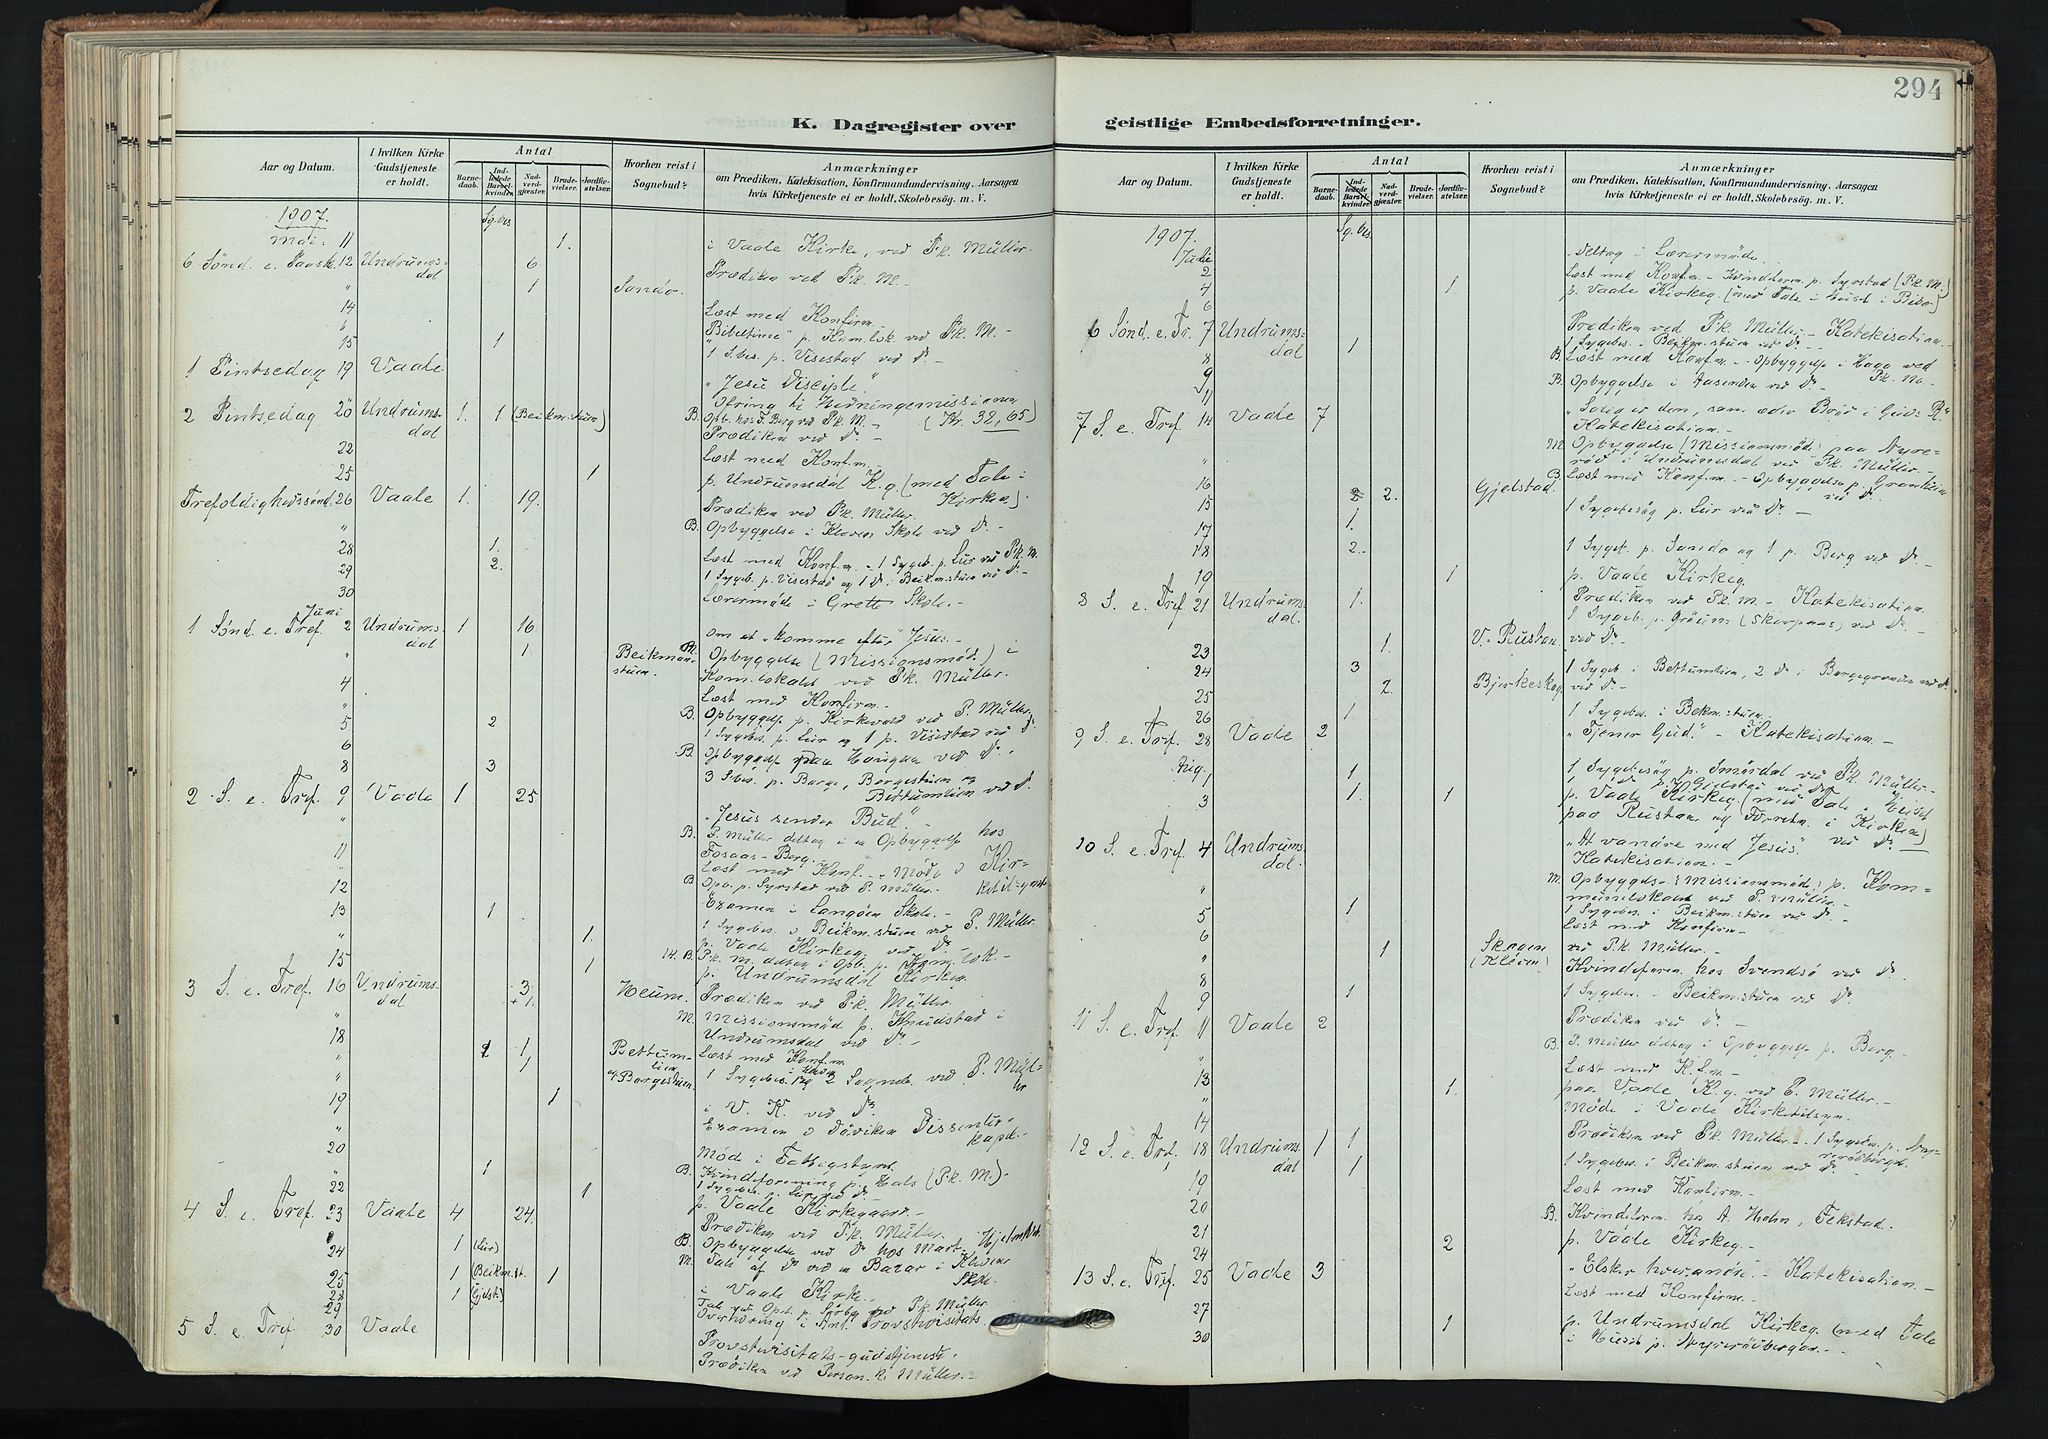 294
K. Dagregister over
geistlige Embedsforretninger.
Aar og Datum.
I hvilken Kirke Gudstjeneste er holdt.
Antal
Barnedaab.
Indledede Barselkvinder.
Nadverdgjæster.
Brudevielser.
Jordfæstelser.
Hvorhen reist i Sognebud?
Anmærkninger
om Prædiken, Katekisation, Konfirmandundervisning. Aarsagen
hvis Kirketjeneste ei er holdt, Skolebesøg. m. V.
1907. Sg. bes.
Mai. 11 1. i Vaale Kirke, ved P.k. Müller.
6 Sønd. e. Paask. 12 Undrumsdal 6 Prædiken ved P.k. M.
" 1 Sandø.
14 Læst med Konfirm.
" "Bibeltime" p. Kom.lok. ved P.k. M. -
15 1 1 S.bes. p. Visestad ved Do -
1 Pintsedag 19 Vaale "Jesu Disciple"
Ofring til Hedningemissionen
2 Pintsedag 20 Undrumsdal 1. 1 (Beikm.stuen) B. Opb. hos F. Berg ved P.k. M. - (Kr. 32,65)
Prædiken ved Do -
22 Læst med Konf.m.
25 1 p. Undrumsdal K.g. (med Tale i Kirken).
Trefoldighedssønd. 26 Vaale 1. 19. Prædiken ved P.k. Müller.
" B. Opbyggelse i Kleven Skole ved Do -
28 1. Læst med Konf.m. - 1 Sygeb. p. Lur ved P.k. M.
29 2. 1 Sygeb. p. Visestad og 1 Do i Beikm.stuen ved Do -
30 Lærermøde i Grette Skole. -
Juni
1 Sønd. e. Tref. 2 Undrumsdal 1 16 om at "komme efter" Jesus. -
" 1. Beikmanstuen. M. Opbyggelse (Missionsmøde) i
Kom.lokalet ved P.k. Müller.
4 Læst med Konfirm. -
" B. Opbyggelse p. Kirkevold ved P. Müller.
5 2 1 Sygebes. p. Lur og 1 p. Visestad ved Do
6 B. Opbyggelse paa Honigaa ved Do.
8 3 3 S.bes. p. Barge, Borgestuen og
Bettumlien ved Do.
2 S. e. Tref. 9 Vaale 1 25 "Jesus sender Bud" -
" B. P. Müller deltog i en Opbyggelse hos
Fosaas-Berg. -
11 Læst med Konf. - Møde i Kirketilsynet
" B. Opb. p. Syrstad ved P. Müller. -
12 Examen i Langøen Skole. -
13 1 1 Sygebes. i Beikm.stuen ved P. Müller
" 1. p. Vaale Kirkeg. ved Do -
14. B. P.k. M. deltog i Opb. p. Kom.lok. -
15 1 p. Undrumsdal Kirkeg.
3 S. e. Tref. 16 Undrumsdal 3 + 1 Heum. Prædiken ved P.k. Müller.
" M. Missionsmøde p. Knudstad i
Undrumsdal ved Do -
18 Læst med Konf.m.
" 1 1 1 Bettumlien og Borgestuen. 1 Sygebes. i Kleven og 2 Sogneb. ved P. Müller
19 1 i V. K. ved Do.
" Examen i Døviken Dissenterkapel. -
20 Møde i Fattigstyret.
" 1 B. Kvindeforening p. Hals (P.k. M.). -
1 Sygebes. p. Lur ved Do -
22 1 p. Vaale Kirkegaard. -
4 S. e. Tref. 23 Vaale 4 24. Prædiken ved P.k. Müller.
" B. Opbyggelse ved Do hos Mart.
24 1 (Lur) M. Tale af Do ved en Bazar i Klevens Skole.
25 1 (Beikm.st.) 1 i Vaale Kirke.
28 1 (Gjelst.) Tale ved Opb. p. Sørby ved P.k. Müller
29 Overhøring i Anl. Provstevisitats.
5 S. e. Tref. 30 Vaale Provstevisitats-gudstjeneste.
Prædiken ved Person. k. Müller. -
Aar og Datum.
I hvilken Kirke Gudstjeneste er holdt.
Antal
Barnedaab.
Indledede Barselkvinder.
Nadverdgjæster.
Brudevielser.
Jordfæstelser.
Hvorhen reist i Sognebud?
Anmærkninger
om Prædiken, Katekisation, Konfirmandundervisning. Aarsagen
hvis Kirketjeneste ei er holdt, Skolebesøg. m. V.
1907. Sg. bes.
Juli Deltog i Lærermøde.
2 Læst med Konf.m. - Kvindeforen. p. Syrstad (P.k. M.)
4 1 p. Vaale Kirkeg. (med Tale i Huset i Bibo)
6
6 Sønd. e. Tr. 7 Undrumsdal Prædiken ved P.k. Müller - Katekisation. -
8 1 1 Sygebes. - Beikm.stuen ved Do -
9 B. Læst med Konf.m. - Opbyggelse i Haga ved P.k. M. -
11 B. Opbyggelse i Aasenden ved Do -
7 S. e. Tref. 14 Vaale 7 "Salig er den, som æder Brød i Guds R"
Katekisation. -
" M. Opbyggelse (Missionsmøde) paa Nyrerød i Undrumsdal ved P.k. Müller. -
16 2 2. Gjelstad. B. Læst med Konf.m. - Opbyggelse p. Granheim ved Do -
15 1 Sygebesøg p. Lur ved Do -
17 1.
18 2. 1 Sygeb. p. Sandø og 1 p. Berg ved Do -
19 1 p. Vaale Kirkeg.
8 S. e. Tref. 21 Undrumsdal. 1. Prædiken ved P.k. M. - Katekisation.
1 Sygeb. p. Grøum (Skorpaas) ved Do -
23 1. V. Rustan ved Do -
24 3 1 Sygeb. i Bettumlien, 2 Do i Borgegranden ved Do
25 2. Bjerkeskog ved Do -
26 1 1 Sygebes. i Bekm.stuen.
9 S. e. Tref. 28 Vaale 2 "Tjener Gud." - Katekisation. -
Aug. 1 1 1 Sygebesøg p. Smørdal ved P.k. Müller. -
1 Do p. Gjelstad ved Do
3 1. 1 p. Vaale Kirkeg. (med Tale i Huset
paa Rustan og Forretn. i Kirken)
10 S. e. Tref. 4 Undrumsdal. "At vandre med Jesus" ved Do -
Katekisation. -
" M. Opbyggelse (Missionsmøde) p. Kommunelokalet ved P. Müller. -
5 1 1 Sygebes. i Beikm.stuen ved Do -
6 Læst med Konfirm. -
" 1 Skagen (Kleven) ved P.k. Müller. -
8 Kvindeforen. hos Svendsø ved Do.
9 1 1 Sygebes. - Beikm.stuen ved Do
11 S. e. Tref. 11 Vaale 2 Prædiken ved Do -
" B. P. Müller deltog i Opbyggelse p. Berg. -
13 Læst med K.f.m. -
" 1. paa Vaale K.g. ved P. Müller. -
14 Møde i Vaale Kirketilsyn.
12 S. e. Tref. 18 Undrumsdal 1 1 Prædiken ved P.k. Müller. - 1 Sygebes. p. Nyrerødbergan.
1 1 Sygebes. i Beikm.stuen ved Do -
19 Læst med Konfirm. -
20
21 B. Kvindeforen. hos A. Holm, Fekstad. -
24 2 p. Vaale Kirkeg. -
13 S. e. Tref. 25 Vaale 3 "Elsker hverandre." - Katekisation. -
27 Læst med Konfirm. -
30 1 p. Undrumsdal Kirkeg. (med Tale
i Huset p. Nyrerødbergan. -